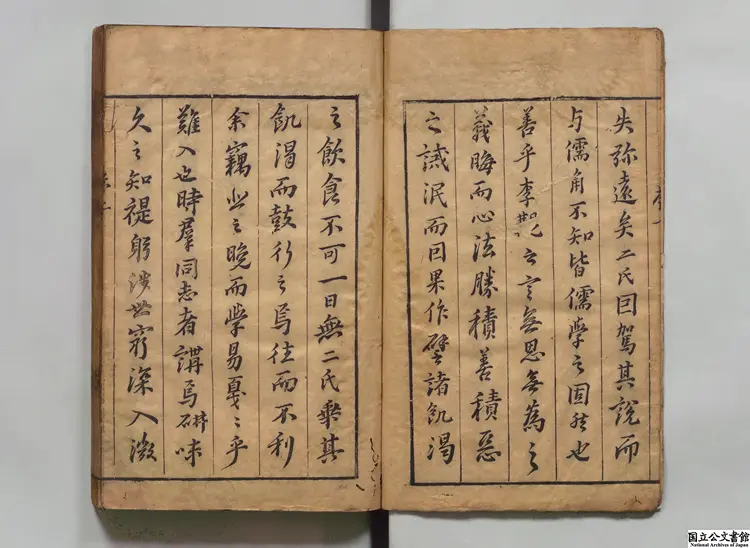 失弥遠矣二氏因駕其說而
与儒角不知皆儒學之固然也
善乎李之言無思無為之
義晦而心法勝積善積惡
之誡泯而因果作譬諸飢渴
之飲食不可一日無二氏乘其
飢渴而鼓行之焉往而不利
余竊悲之晚而學易戛々乎
難入也時羣同志者講焉研味
久之知禔躬涉世窮深入微
国立公文書館
National Archives of Japan